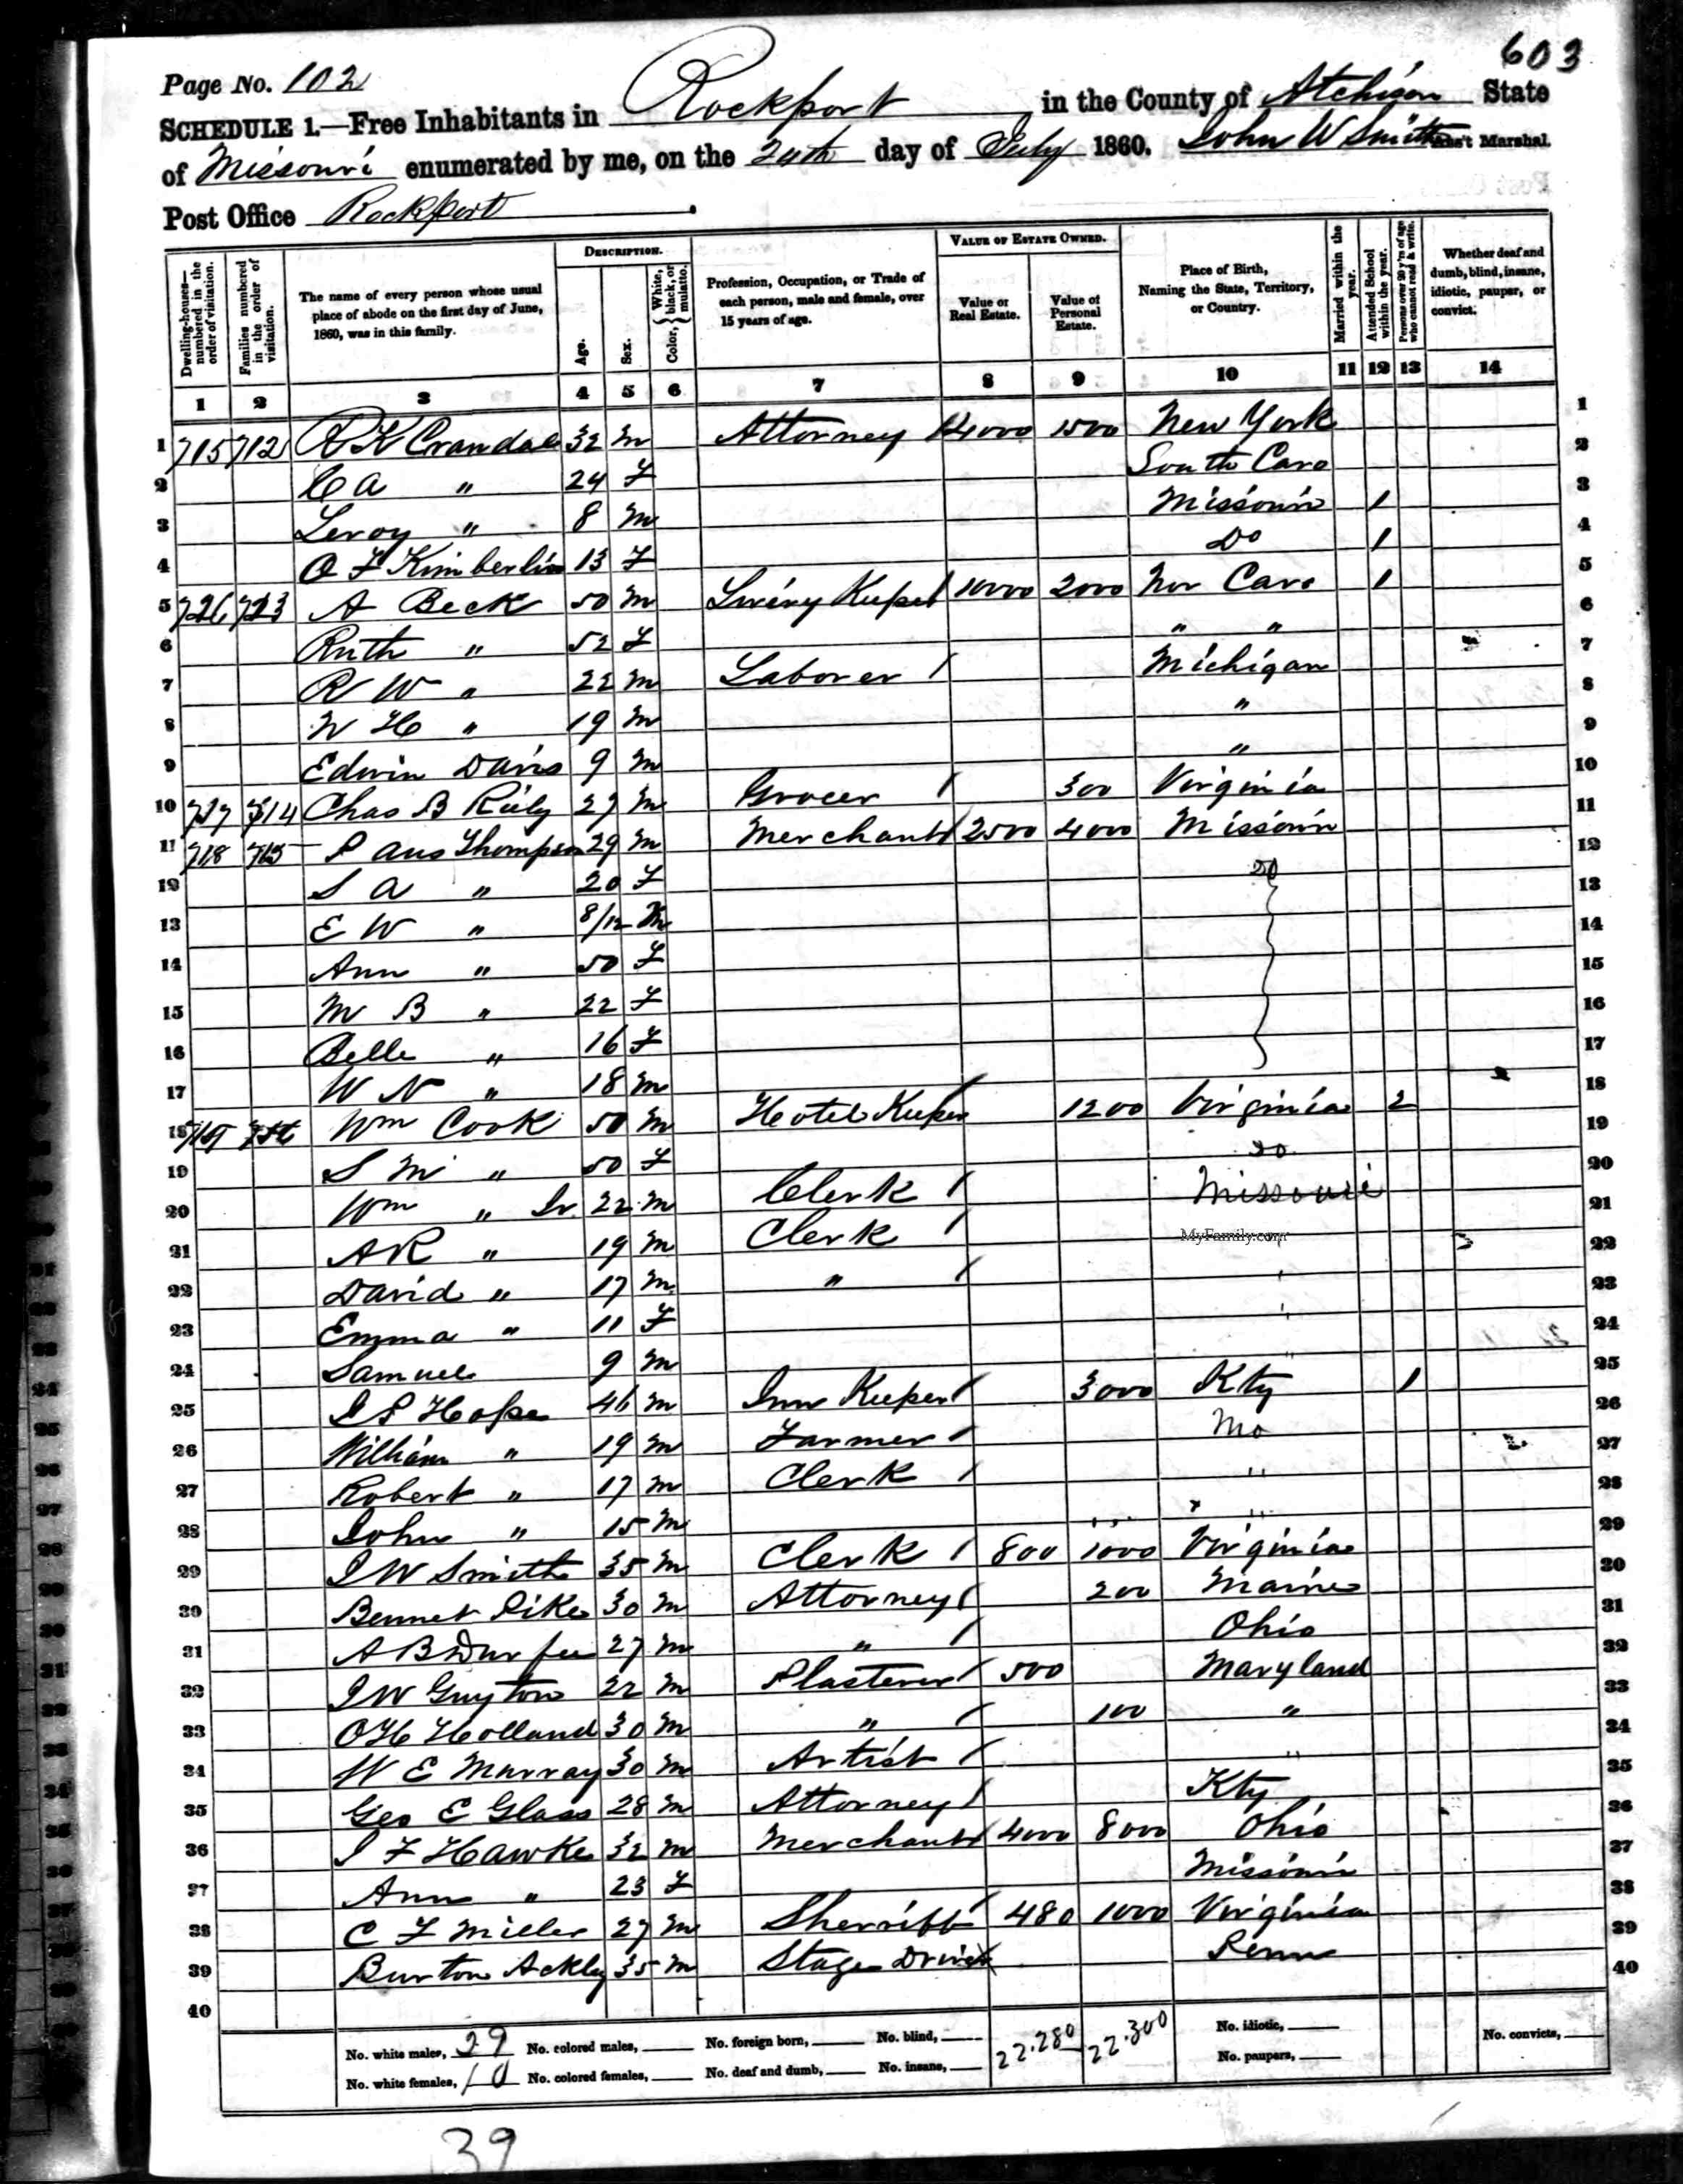 603
Page No. 102
SCHEDULE 1.—Free Inhabitants in Rockport in the County of Atchison State
of Missouri enumerated by me, on the 24th day of July 1860. John W Smith Ass't Marshal.
Post Office Rockport
Dwelling-houses—numbered in the order of visitation.
Families numbered in the order of visitation.
The name of every person whose usual place of abode on the first day of June, 1860, was in this family.
DESCRIPTION.
Age.
Sex.
Color, White, black, or mulatto.
Profession, Occupation, or Trade of each person, male and female, over 15 years of age.
VALUE OF ESTATE OWNED.
Value of Real Estate.
Value of Personal Estate.
Place of Birth, Naming the State, Territory, or Country.
Married within the year.
Attended School within the year.
Persons over 20 y'rs of age who cannot read & write.
Whether deaf and dumb, blind, insane, idiotic, pauper, or convict.
1 2 3 4 5 6 7 8 9 10 11 12 13 14
1 715 712 Crandall 32 m Attorney / 4000 1500 New York 1
2 C A " 24 F South Caro 2
3 Leroy " 8 m Missouri 1 3
4 O F Kimberlin 13 F Do 1 4
5 A Beck 50 m Livery Keeper / 10000 2000 Nor Caro 1 5
6 Ruth " 52 F " " 6
7 R W " 22 m Laborer / Michigan 7
8 W H " 19 m " 8
9 Edwin Davis 9 m " 9
10 717 714 Chas B Riely 27 m Grocer / 300 Virginia 10
11 718 715 Thompson 29 m Merchant / 2500 4000 Missouri 11
12 S A " 20 F do 12
13 E W " 8/12 m 13
14 Ann " 50 F 14
15 M B " 22 F 15
16 Belle " 16 F 16
17 W N " 18 m 17
18 719 Wm Cook 50 m Hotel Keeper 1200 Virginia 2 18
19 S M " 50 F do 19
20 Wm " Jr. 22 m Clerk / Missouri 20
21 A R " 19 m Clerk / MyFamily.com 21
22 David " 17 m " / 22
23 Emma " 11 F 23
24 Samuel 9 m " 24
25 J P Hope 46 m Inn Keeper / 3000 Kty 1 25
26 William " 19 m Farmer / Mo 26
27 Robert " 17 m Clerk / " 27
28 John " 15 m " 28
29 J W Smith 35 m Clerk / 800 1000 Virginia 29
30 Bennet Pike 30 m Attorney / 200 Maine 30
31 A B Durfee 27 m " / Ohio 31
32 J W Guyton 22 m Plasterer / 500 Maryland 32
33 O H Holland 30 m " / 100 " 33
34 W E Murray 30 m Artist / " 34
35 Geo E Glass 28 m Attorney / Kty 35
36 J F Hawke 32 m Merchant / 4000 8000 Ohio 36
37 Ann " 23 F Missouri 37
38 C F Miller 27 m Sherriff / 480 1000 Virginia 38
39 Burton Ackley 35 m Stage Driver Penn 39
40 40
No. white males, 29 No. colored males, No. foreign born, No. blind, 22.280 22.300 No. idiotic, No. convicts,
No. white females, 10 No. colored females, No. deaf and dumb, No. insane, No. paupers,
39